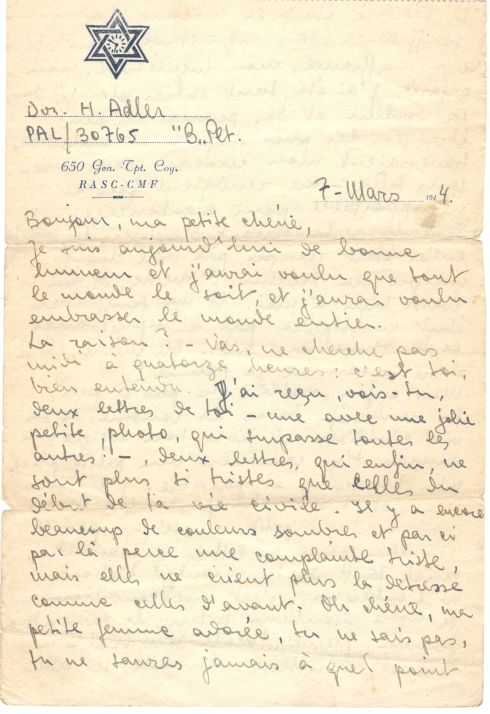 Dvr. H. Adler
PAL/30765 "B" Plt.
650 Gen. Tpt. Coy.
RASC-CMF
7-Mars 1944.
Bonjour, ma petite chérie,
Je suis aujourd'hui de bonne
humeur et j'aurai voulu que tout
le monde le soit, et j'aurai voulu
embrasser le monde entier.
La raison? - Vas, ne cherche pas
midi à quatorze heures: c'est toi,
bien entendu. J'ai reçu, vois-tu,
deux lettres de toi - une avec une jolie
petite photo, qui surpasse toutes les
autres! -, deux lettres, qui enfin, ne
sont plus si tristes que celles du
début de ta vie civile. Il y a encore
beaucoup de couleurs sombres et par ci
par là perce une complainte triste,
mais elles ne crient plus la détresse
comme celles d'avant. Oh chérie, ma
petite femme adorée, tu ne sais pas,
tu ne sauras jamais à quel point